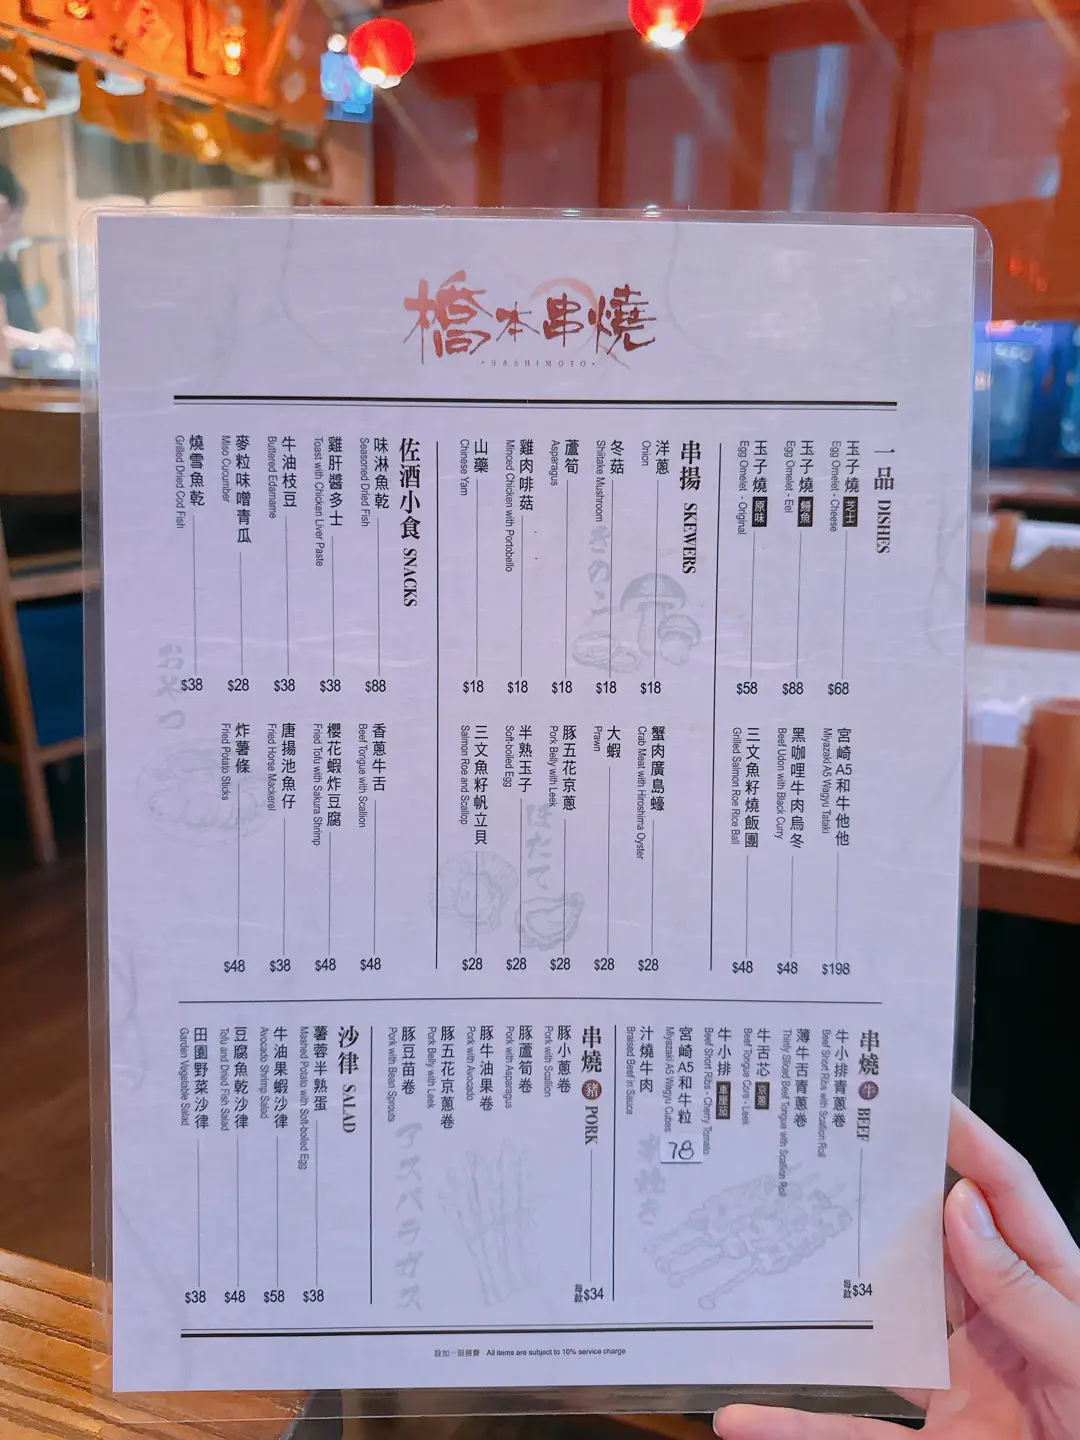 橋本串燒
·HASHIMOTO·
一品 DISHES
玉子燒 芝士
Egg Omelet - Cheese
$68
玉子燒 鰻魚
Egg Omelet - Eel
$88
玉子燒 原味
Egg Omelet - Original
$58
宮崎A5和牛他他
Miyazaki A5 Wagyu Tataki
$198
黑咖哩牛肉烏冬
Beef Udon with Black Curry
$48
三文魚籽燒飯團
Grilled Salmon Roe Rice Ball
$48
串揚 SKEWERS
洋蔥
Onion
$18
冬菇
Shiitake Mushroom
$18
蘆筍
Asparagus
$18
雞肉啡菇
Minced Chicken with Portobello
$18
山藥
Chinese Yam
$18
きのこ
蟹肉廣島蠔
Crab Meat with Hiroshima Oyster
$28
大蝦
Prawn
$28
豚五花京蔥
Pork Belly with Leek
$28
半熟玉子
Soft-boiled Egg
$28
三文魚籽帆立貝
Salmon Roe and Scallop
$28
ほたて
佐酒小食 SNACKS
味淋魚乾
Seasoned Dried Fish
$88
雞肝醬多士
Toast with Chicken Liver Paste
$38
牛油枝豆
Buttered Edamame
$38
麥粒味噌青瓜
Miso Cucumber
$28
燒雪魚乾
Grilled Dried Cod Fish
$38
おやつ
香蔥牛舌
Beef Tongue with Scallion
$48
櫻花蝦炸豆腐
Fried Tofu with Sakura Shrimp
$48
唐揚池魚仔
Fried Horse Mackerel
$38
炸薯條
Fried Potato Sticks
$48
串燒 牛 BEEF
每款 $34
牛小排青蔥卷
Beef Short Ribs with Scallion Roll
薄牛舌青蔥卷
Thinly Sliced Beef Tongue with Scallion Roll
牛舌芯 京蔥
Beef Tongue Core - Leek
牛小排 車厘茄
Beef Short Ribs - Cherry Tomato
宮崎A5和牛粒
Miyazaki A5 Wagyu Cubes
78
汁燒牛肉
Braised Beef in Sauce
串燒 豬 PORK
每款 $34
豚小蔥卷
Pork with Scallion
豚蘆筍卷
Pork with Asparagus
豚牛油果卷
Pork with Avocado
豚五花京蔥卷
Pork Belly with Leek
豚豆苗卷
Pork with Bean Sprouts
アスパラガス
沙律 SALAD
薯蓉半熟蛋
Mashed Potato with Soft-boiled Egg
$38
牛油果蝦沙律
Avocado Shrimp Salad
$58
豆腐魚乾沙律
Tofu and Dried Fish Salad
$48
田園野菜沙律
Garden Vegetable Salad
$38
設加一服務費 All items are subject to 10% service charge